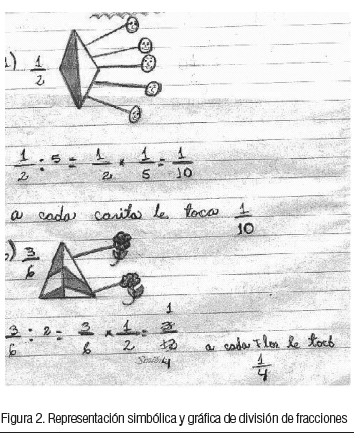 1) 1/2
1/2 : 5 = 1/2 × 1/5 = 1/10
a cada carita le toca 1/10
) 3/6
3/6 : 2 = 3/6 × 1/2 = 3/12 1/4
a cada flor le tocó 1/4
Figura 2. Representación simbólica y gráfica de división de fracciones